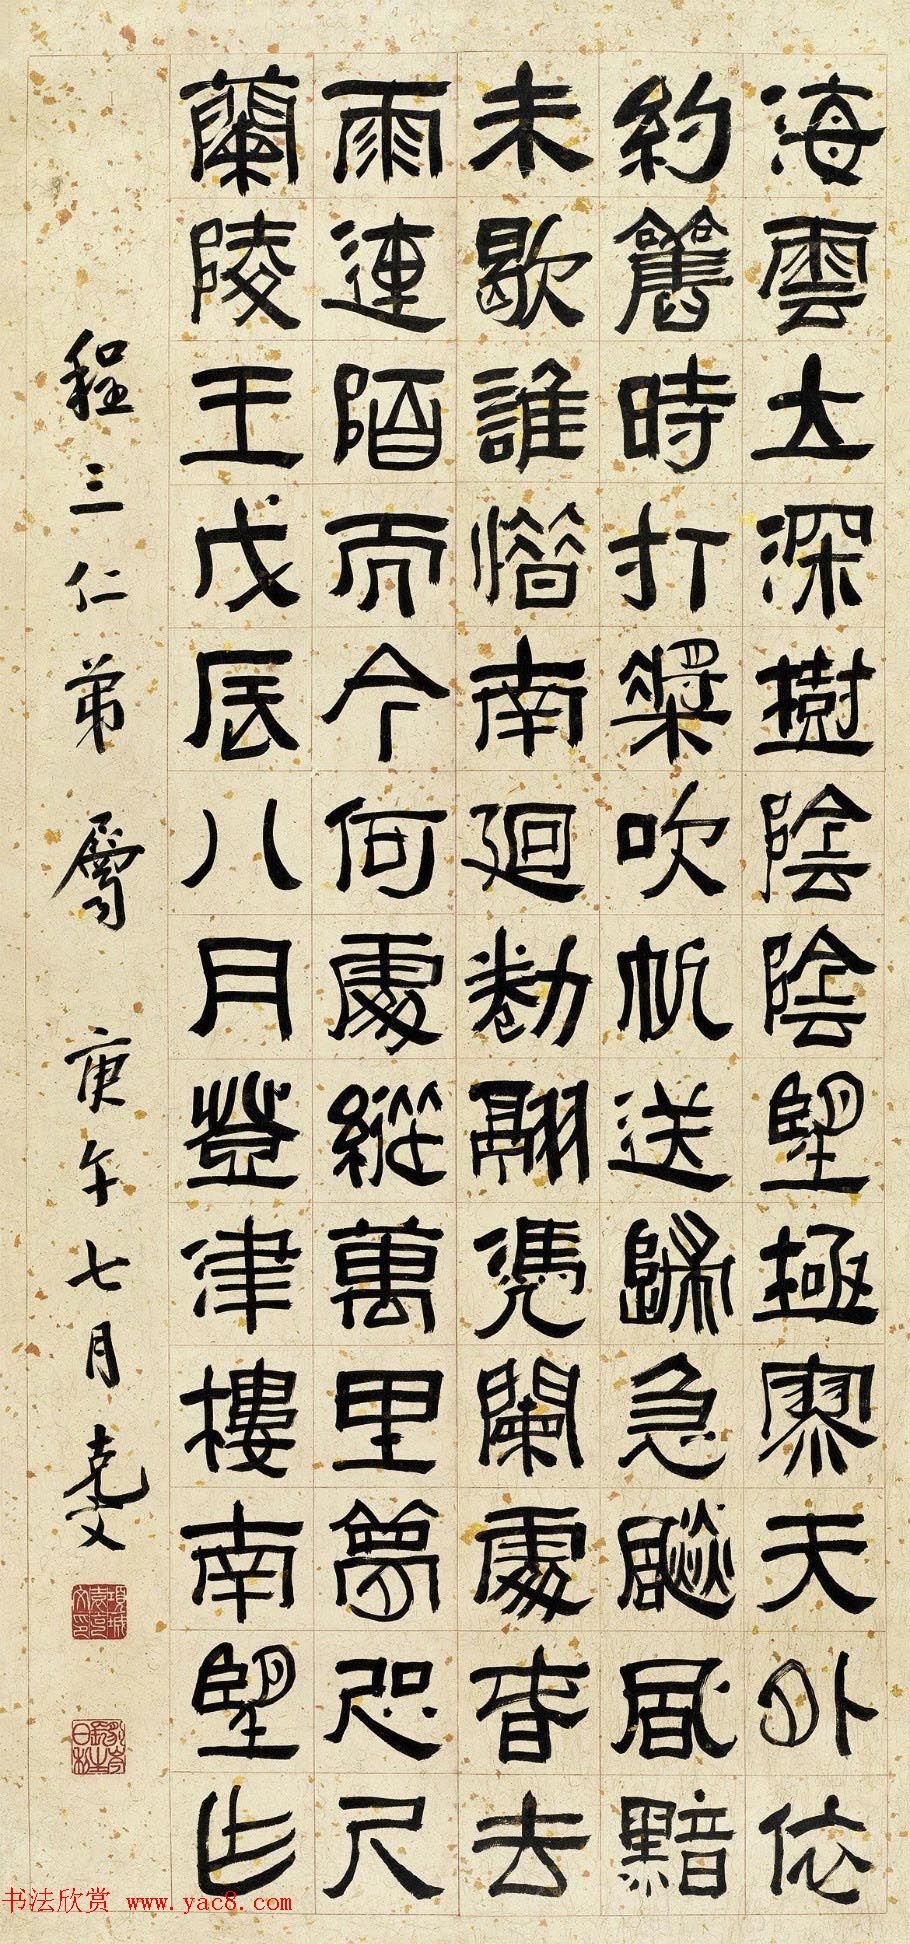 海雲深樹陰陰望極寥天外依
約舊時打槳吹帆送歸急飈風黯
未歇誰惜南廻勌翮憑闌處春去
雨連陌而今何處縱萬里夢咫尺
蘭陵王戊辰八月登津樓南望作
程三仁弟屬 庚午七月 克文
項城袁克文印
书法欣赏 www.yac8.com